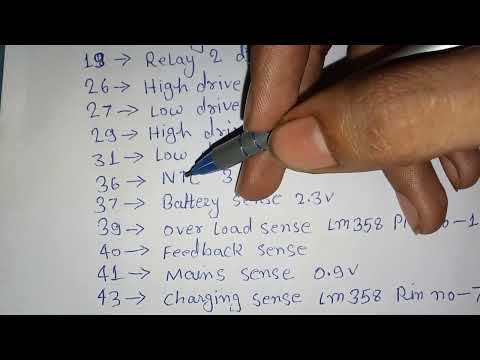 19 → Relay 2
26 → High drive
27 → Low drive
29 → High driv
31 → Low
36 → NTC 3
37 → Battery sense 2.3v
39 → over Load sense Lm358 Pin no-1
40 → Feedback sense
41 → Mains sense 0.9v
43 → charging sense Lm358 Pin no-7